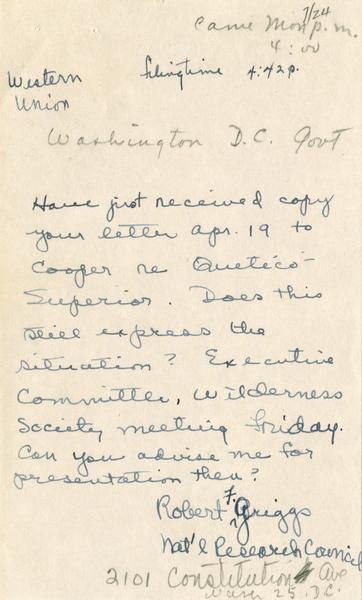 7/24
Came Mon p.m.
4:00
Western Union
filing time 4:42p.
Washington D.C. Govt
Have just received copy
your letter Apr. 19 to
Cooper re Quetico-
Superior. Does this
still express the
situation? Executive
Committee, Wilderness
Society meeting Friday.
Can you advise me for
presentation then?
Robert F. Griggs
Nat'l Research Council
2101 Constitution Ave
Wash 25 D.C.